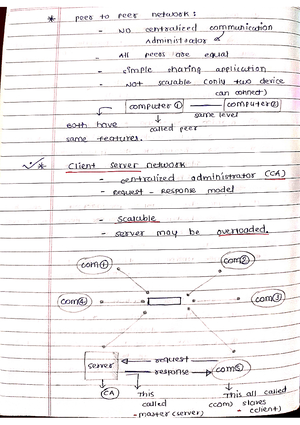 * peer to peer network :
- NO centralized communication
Administrator
- All peers are equal
- simple sharing application
- Not scalable (only two device
can connect)
computer ① computer ②
same level
Both have called peer
same features.
* Client server network
- centralized administrator (CA)
- request - response model
- scalable
- server may be overloaded.
com ① com ②
com ④ com ③
server request com ⑤
response
CA This This all called
called (com) slaves
- master (server) - (client)